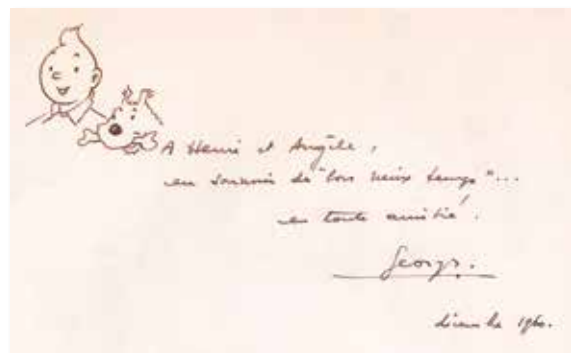 A Henri et Angèle,
en souvenir du "bon vieux temps"...
en toute amitié.
Georges.
décembre 1960.